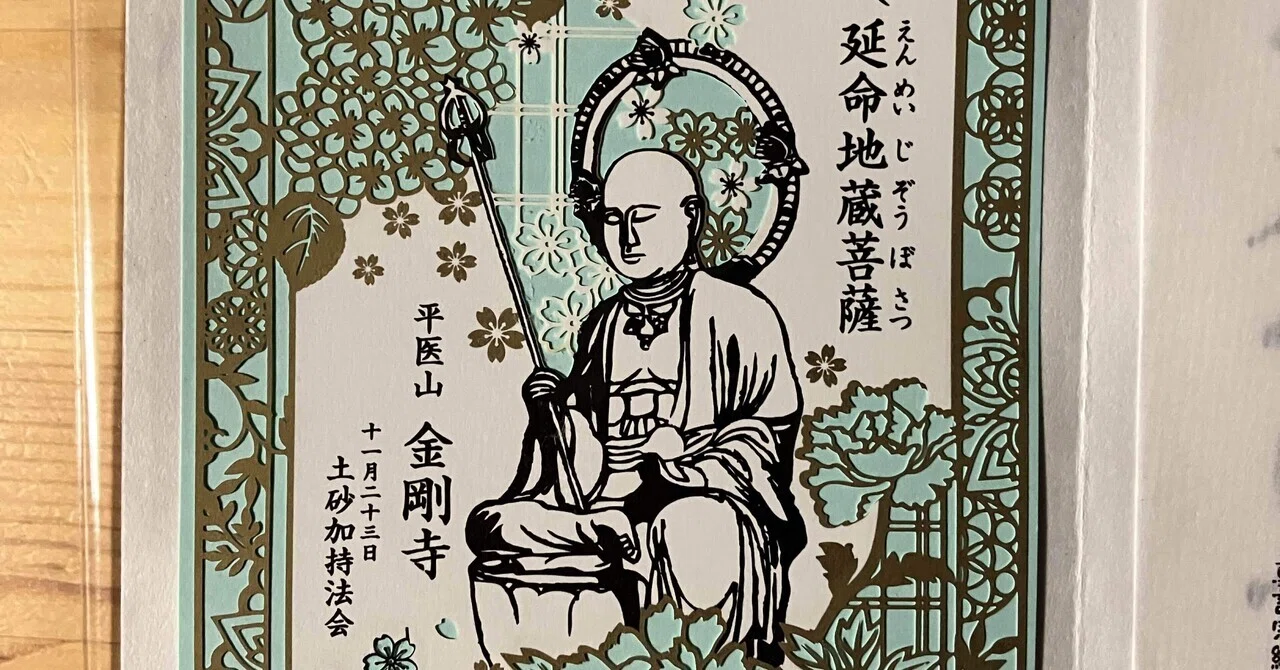 延命地蔵菩薩
えんめいじぞうぼさつ
平医山 金剛寺
十一月二十三日
土砂加持法会